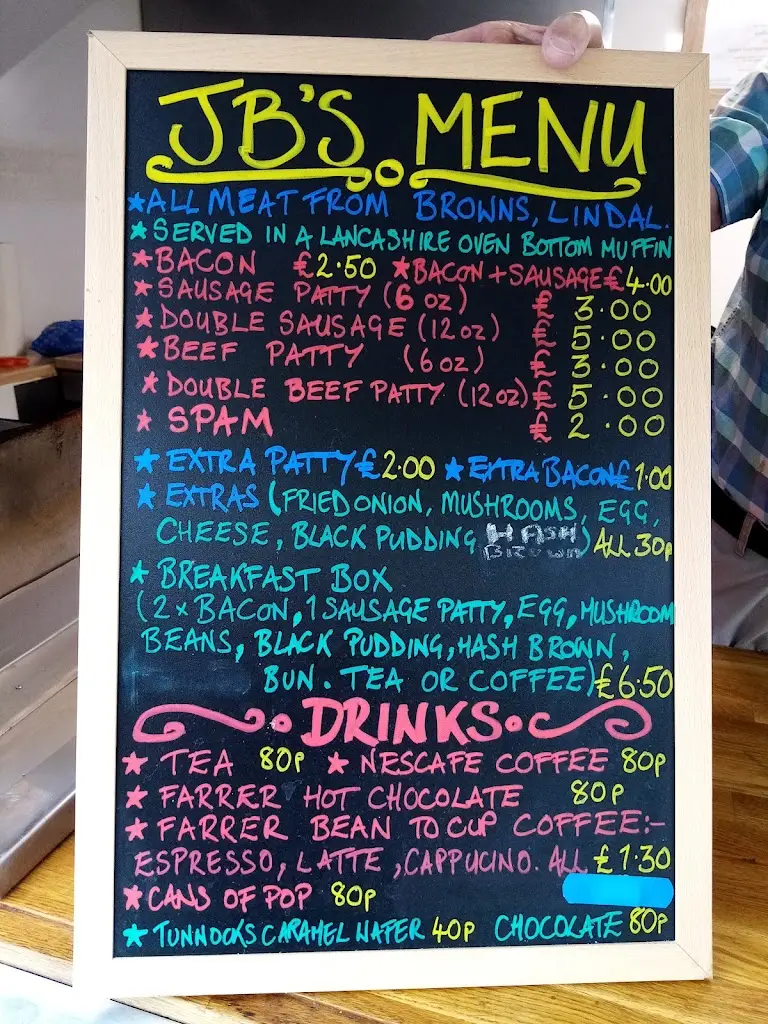 JB'S MENU
★ALL MEAT FROM BROWNS, LINDAL.
★SERVED IN A LANCASHIRE OVEN BOTTOM MUFFIN
★BACON £2.50 ★BACON+SAUSAGE £4.00
★SAUSAGE PATTY (6 oz) £ 3.00
★DOUBLE SAUSAGE (12oz) £ 5.00
★BEEF PATTY (6oz) £ 3.00
★DOUBLE BEEF PATTY (12oz) £ 5.00
★SPAM £ 2.00
★EXTRA PATTY £2.00 ★EXTRA BACON £1.00
★EXTRAS (FRIED ONION, MUSHROOMS, EGG,
CHEESE, BLACK PUDDING HASH BROWN) ALL 30p
★BREAKFAST BOX
(2 x BACON, 1 SAUSAGE PATTY, EGG, MUSHROOM
BEANS, BLACK PUDDING, HASH BROWN,
BUN. TEA OR COFFEE) £6.50
DRINKS
★TEA 80p ★NESCAFE COFFEE 80p
★FARRER HOT CHOCOLATE 80p
★FARRER BEAN TO CUP COFFEE:-
ESPRESSO, LATTE, CAPPUCINO. ALL £1.30
★CANS OF POP 80p
★TUNNOCKS CARAMEL WAFER 40p CHOCOLATE 80p